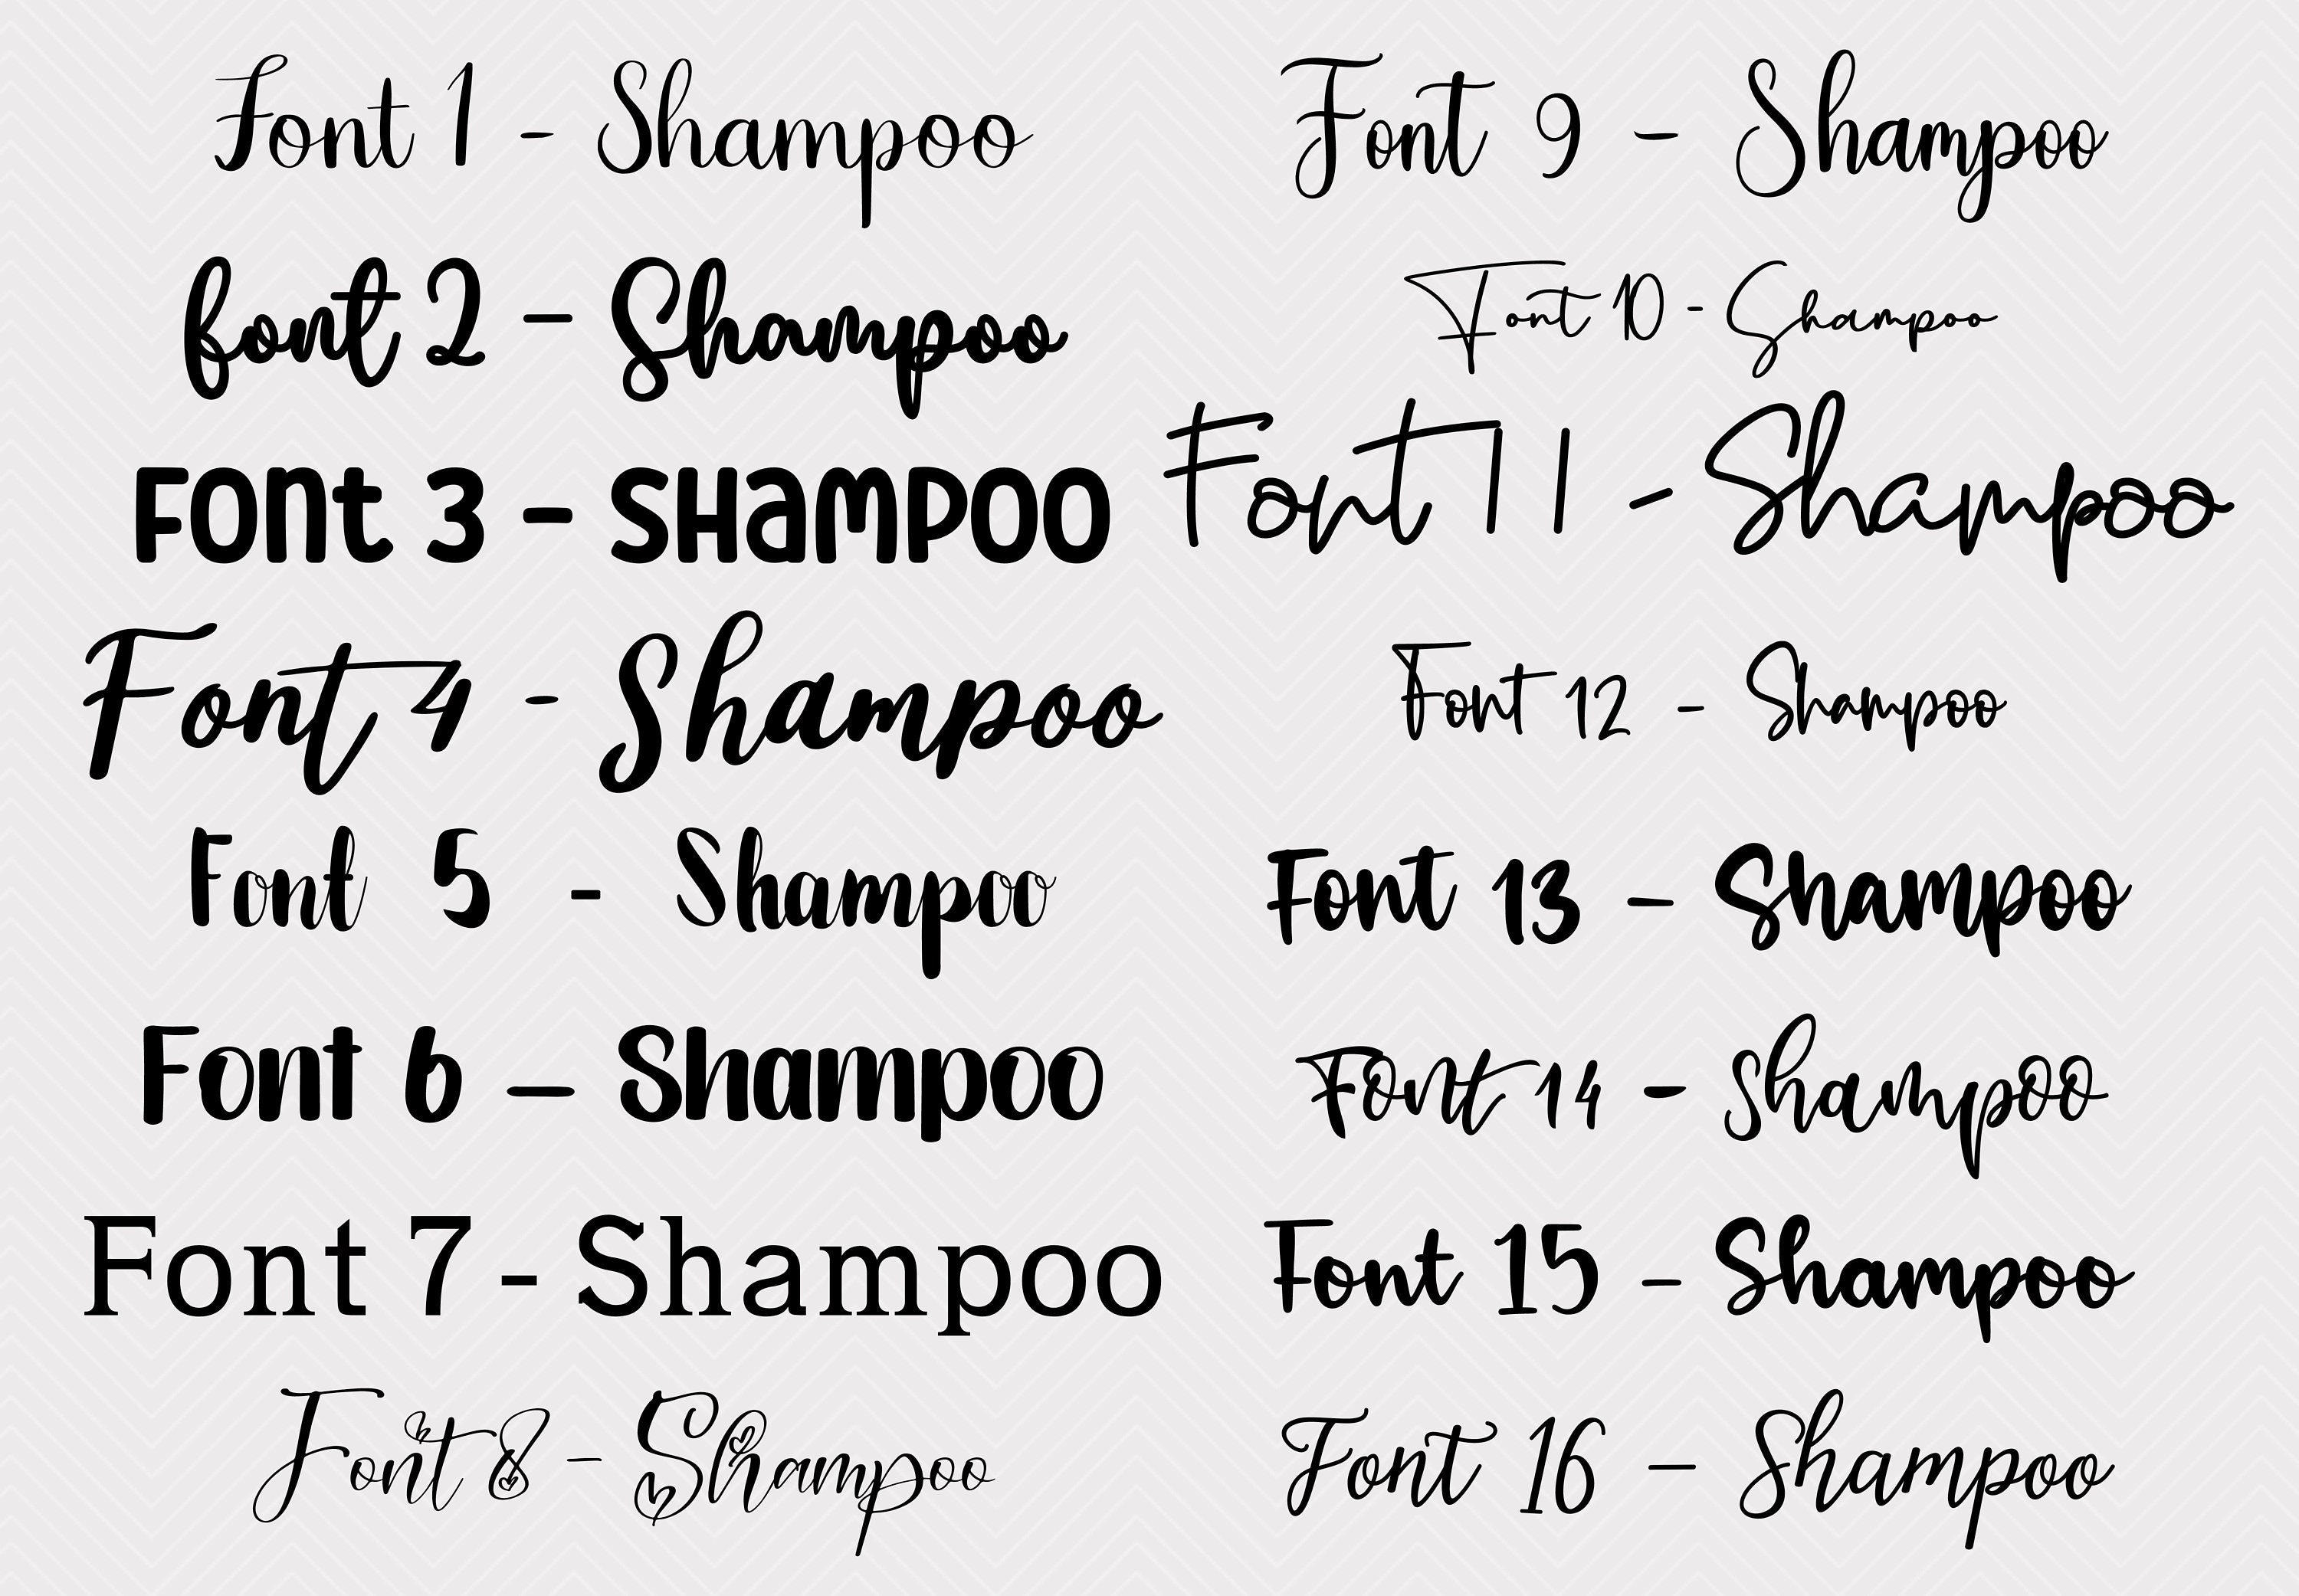 Font 1 - Shampoo
font 2 - Shampoo
FONT 3 - SHAMPOO
Font 4 - Shampoo
Font 5 - Shampoo
Font 6 - Shampoo
Font 7 - Shampoo
Font 8 - Shampoo
Font 9 - Shampoo
Font 10 - Shampoo
Font 11 - Shampoo
Font 12 - Shampoo
Font 13 - Shampoo
Font 14 - Shampoo
Font 15 - Shampoo
Font 16 - Shampoo